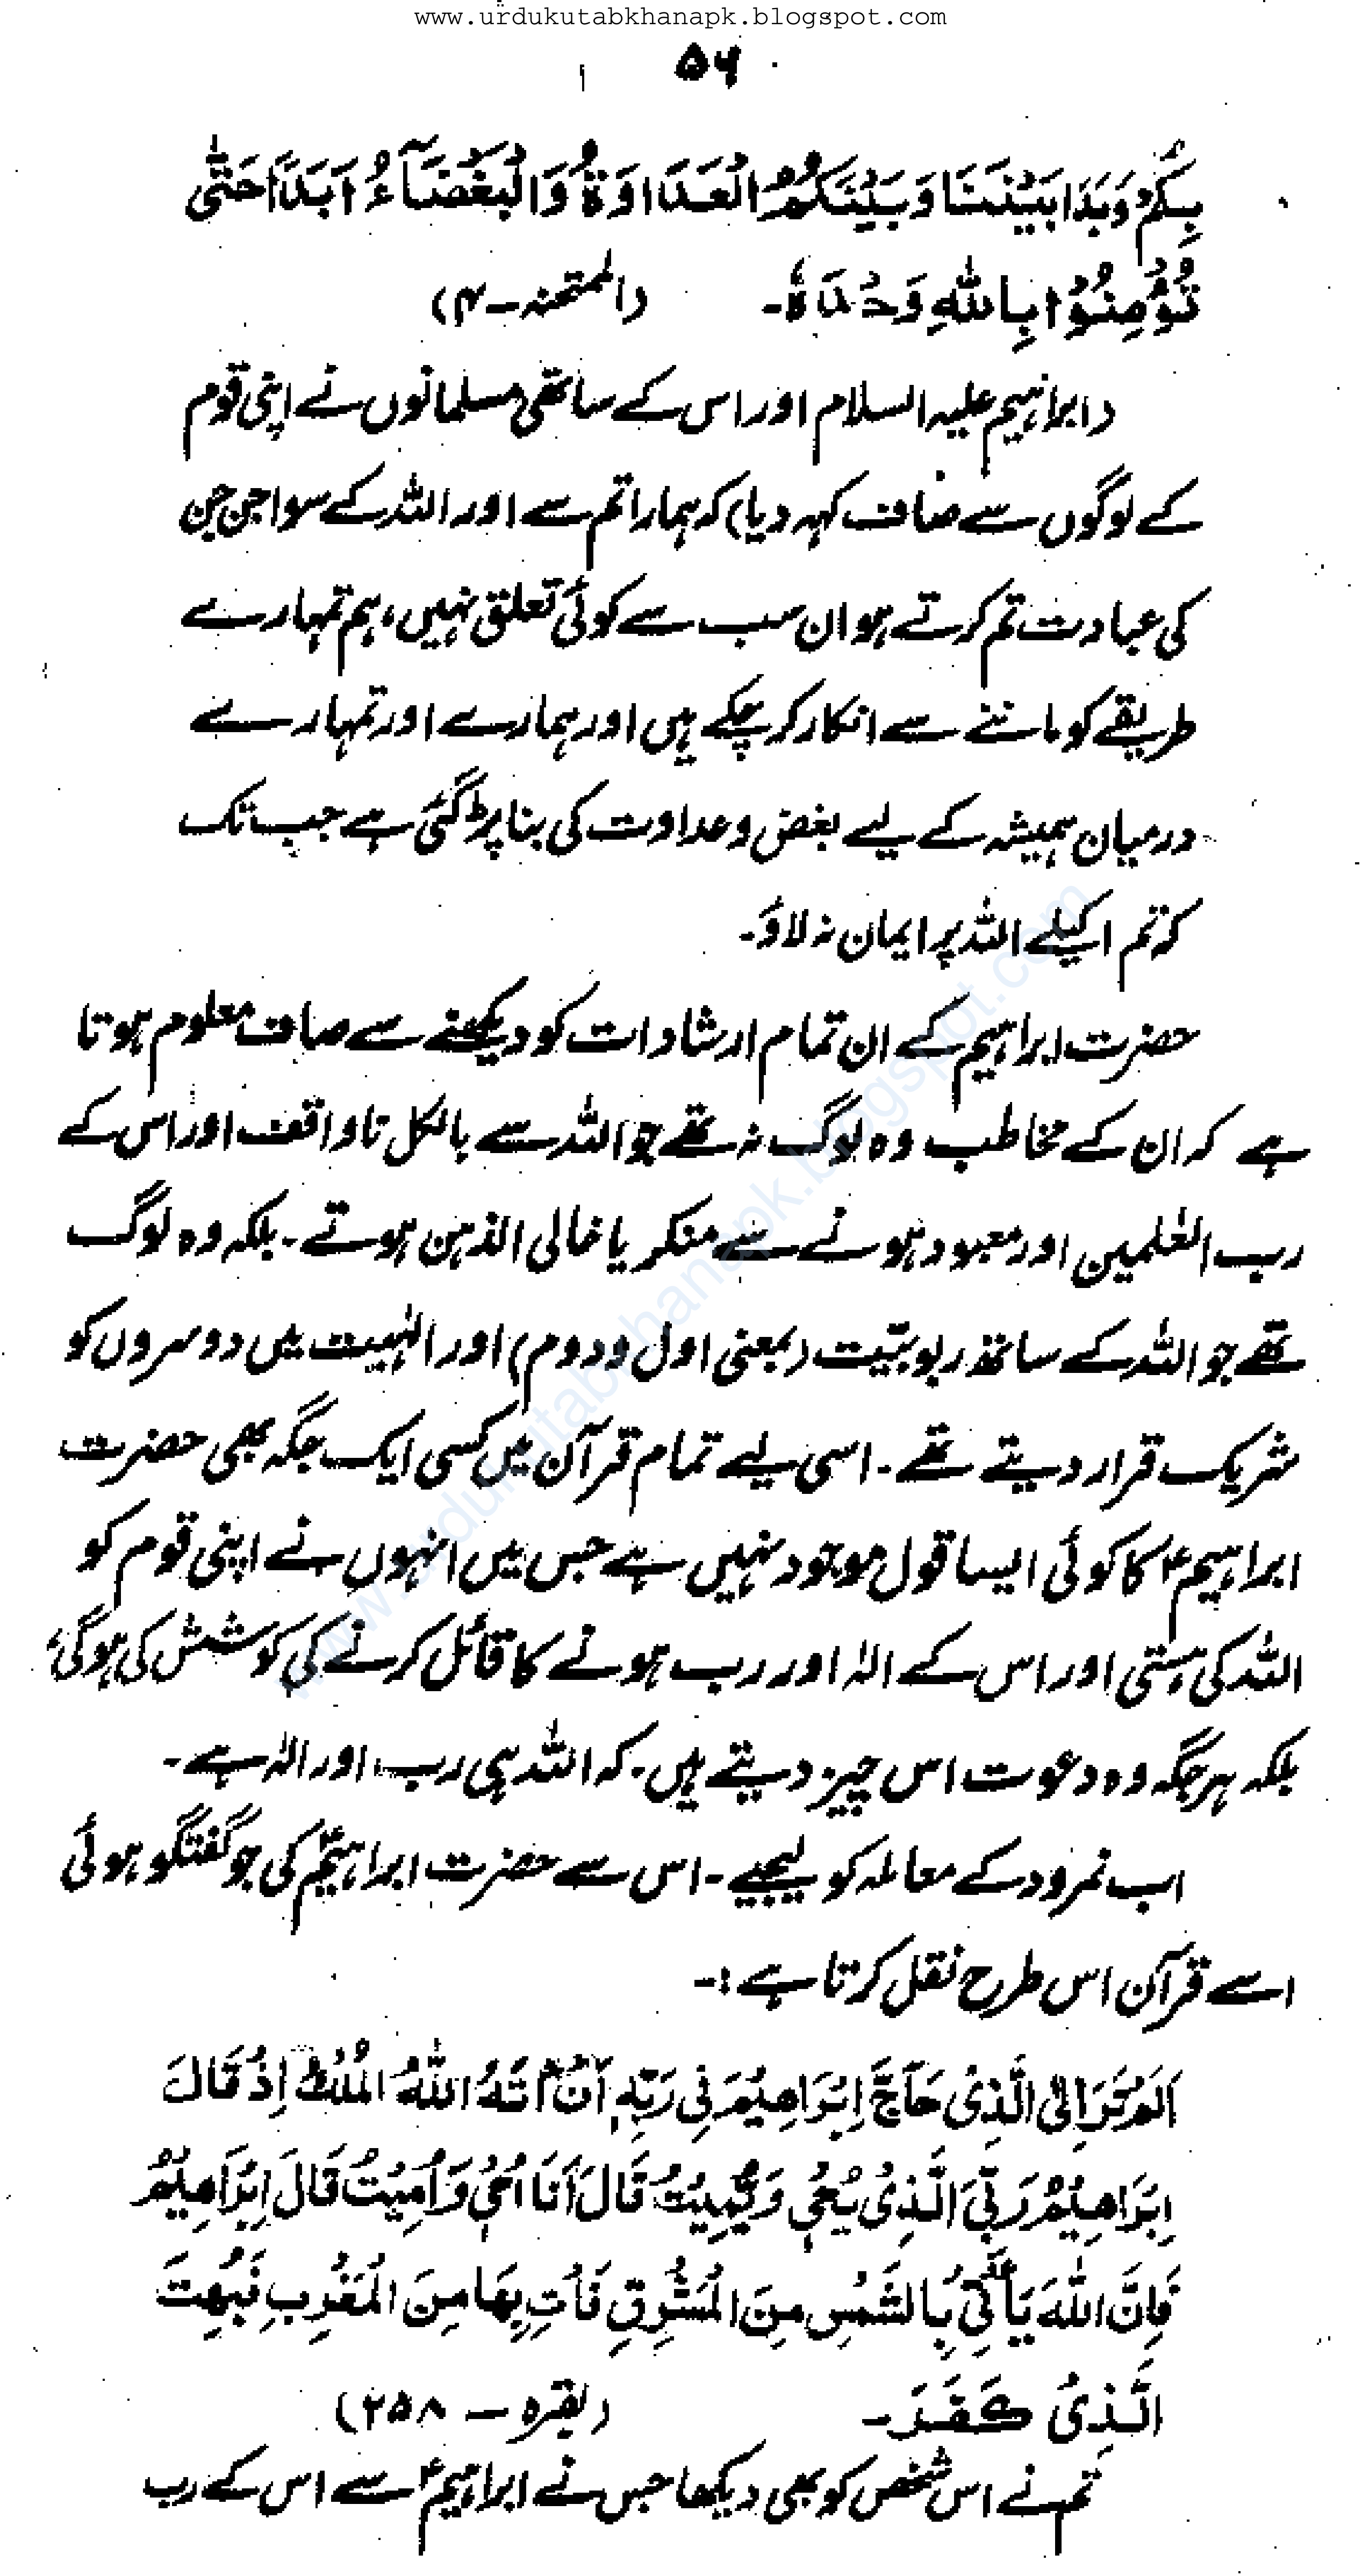 www.urdukutabkhanapk.blogspot.com
۵۶
بِكُمْ وَبَدَا بَيْنَنَا وَبَيْنَكُمُ الْعَدَاوَةُ وَالْبَغْضَآءُ اَبَدًا حَتّٰى
تُؤْمِنُوْا بِاللّٰهِ وَحْدَهٗ۔ (الممتحنہ – ۴)
(ابراہیم علیہ السلام اور اس کے ساتھی مسلمانوں نے اپنی قوم
کے لوگوں سے صاف کہہ دیا) کہ ہمارا تم سے اور اللہ کے سوا جن جن
کی عبادت تم کرتے ہو ان سب سے کوئی تعلق نہیں، ہم تمہارے
طریقے کو ماننے سے انکار کر چکے ہیں اور ہمارے اور تمہارے
درمیان ہمیشہ کے لیے بغض و عداوت کی بنا پڑ گئی ہے جب تک
کہ تم اکیلے اللہ پر ایمان نہ لاؤ۔
حضرت ابراہیم کے ان تمام ارشادات کو دیکھنے سے صاف معلوم ہوتا
ہے کہ ان کے مخاطب وہ لوگ نہ تھے جو اللہ سے بالکل ناواقف اور اس کے
رب العٰلمین اور معبود ہونے سے منکر یا خالی الذہن ہوتے۔ بلکہ وہ لوگ
تھے جو اللہ کے ساتھ ربوبیّت (بمعنی اول و دوم) اور الٰہیت میں دوسروں کو
شریک قرار دیتے تھے۔ اسی لیے تمام قرآن میں کسی ایک جگہ بھی حضرت
ابراہیمؑ کا کوئی ایسا قول موجود نہیں ہے جس میں انہوں نے اپنی قوم کو
اللہ کی ہستی اور اس کے الٰہ اور رب ہونے کا قائل کرنے کی کوشش کی ہوگی،
بلکہ ہر جگہ وہ دعوت اس چیز دیتے ہیں۔ کہ اللہ ہی رب اور الٰہ ہے۔
اب نمرود کے معاملہ کو لیجیے۔ اس سے حضرت ابراہیمؑ کی جو گفتگو ہوئی
اسے قرآن اس طرح نقل کرتا ہے:۔
اَلَمْ تَرَ اِلَى الَّذِىْ حَآجَّ اِبْرَاهِيْمَ فِىْ رَبِّهٖ اَنْ اٰتٰهُ اللّٰهُ الْمُلْكَ اِذْ قَالَ
اِبْرَاهِيْمُ رَبِّىَ الَّذِىْ يُحْىٖ وَيُمِيْتُ قَالَ اَنَا اُحْىٖ وَاُمِيْتُ قَالَ اِبْرَاهِيْمُ
فَاِنَّ اللّٰهَ يَاْتِىْ بِالشَّمْسِ مِنَ الْمَشْرِقِ فَاْتِ بِهَا مِنَ الْمَغْرِبِ فَبُهِتَ
الَّذِىْ كَفَرَ۔ (بقرہ – ۲۵۸)
تم نے اس شخص کو بھی دیکھا جس نے ابراہیمؑ سے اس کے رب
www.urdukutabkhanapk.blogspot.com